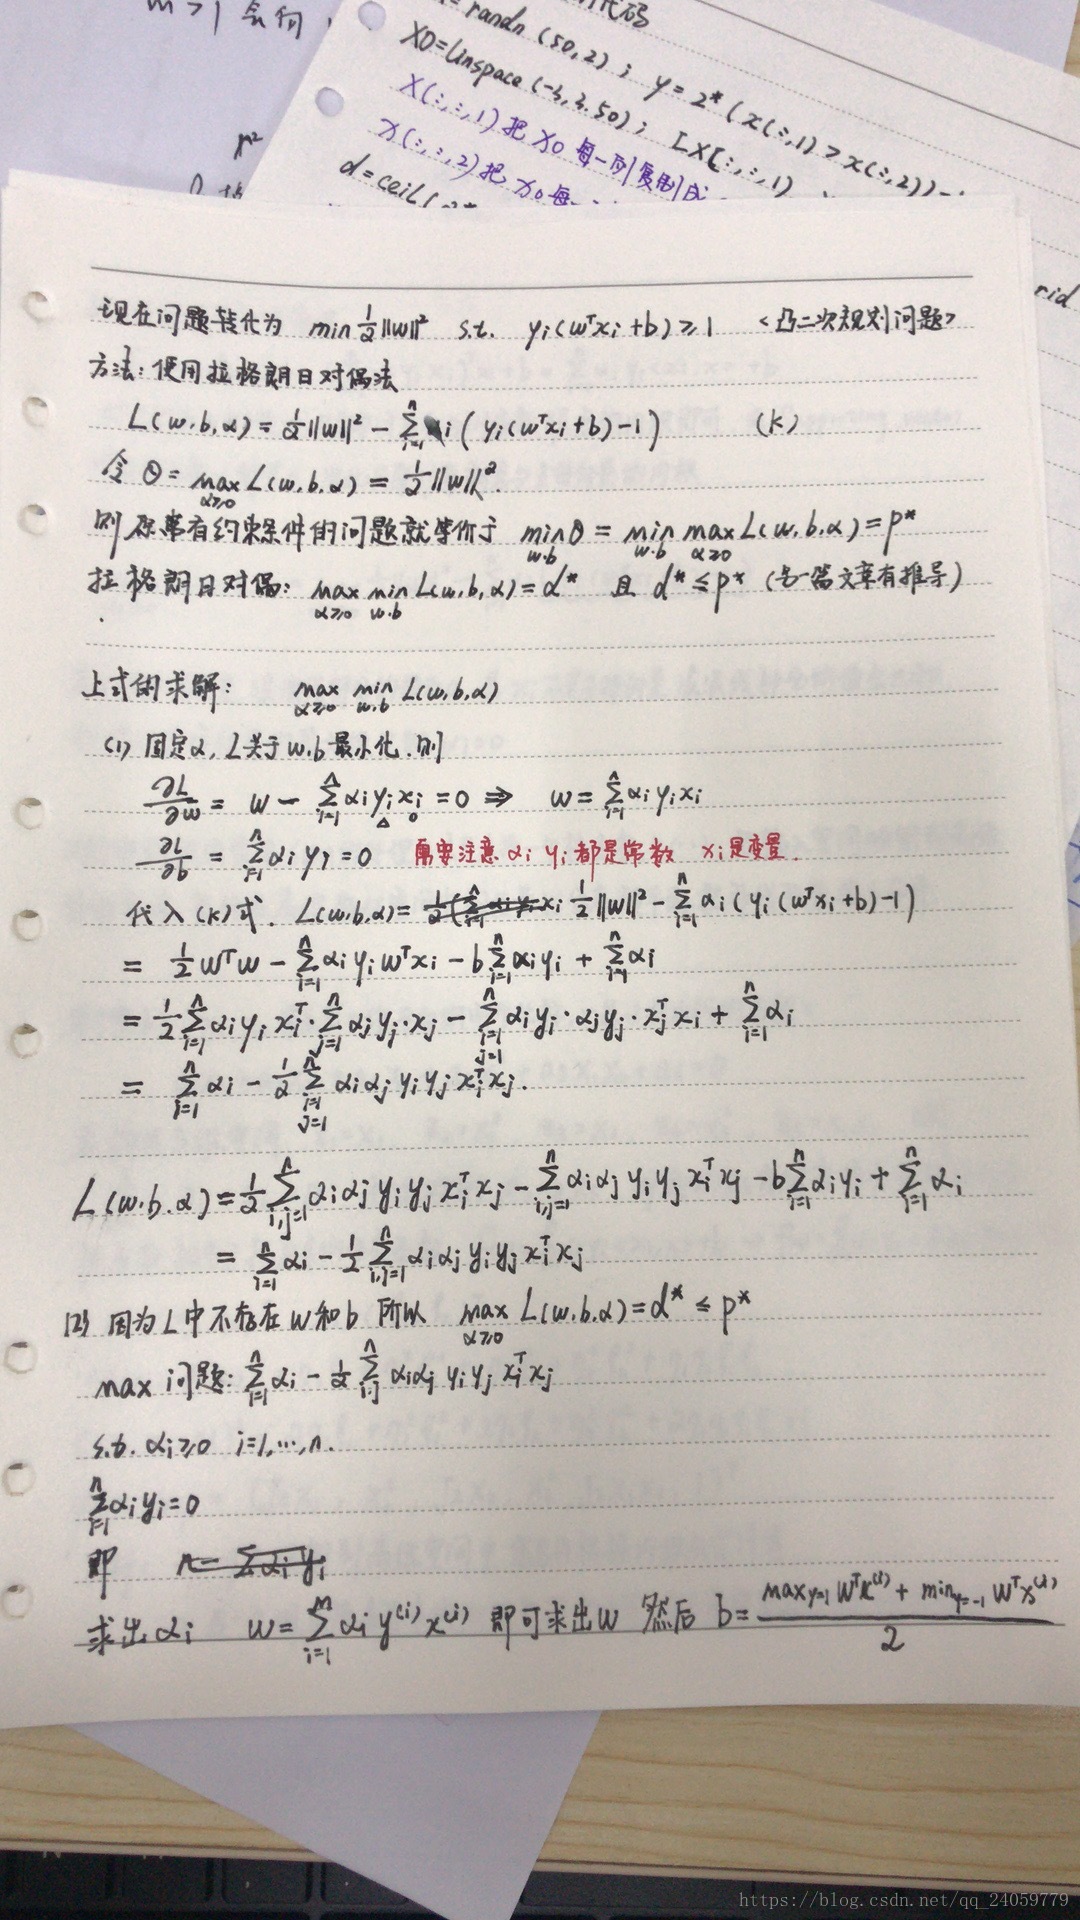 m>1 会何,
代码
= randn(50,2); y=2*(x(:,1)>x(:,2))-
X0=linspace(-3,3.50); [X(:,:,1)
X(:,:,1)把X0每一列复制成
X(:,:,2)把X0每一
d=ceil(
rid
现在问题转化为 min ½||w||² s.t. yᵢ(wᵀxᵢ+b)≥1 <凸二次规划问题>
方法:使用拉格朗日对偶法
L(w.b,α)=½||w||² - ∑ᵢ₌₁ⁿ αᵢ(yᵢ(wᵀxᵢ+b)-1) (K)
令 θ= max_{α≥0} L(w,b.α) = ½||w||².
则原带有约束条件的问题就等价于 min_{w.b} θ = min_{w.b} max_{α≥0} L(w.b,α)=p*
拉格朗日对偶: max_{α≥0} min_{w.b} L(w.b,α)=d* 且 d*≤p* (另一篇文章有推导)
上式的求解: max_{α≥0} min_{w.b} L(w,b,α)
(1) 固定α, L关于w.b最小化.则
∂L/∂w = w - ∑ᵢ₌₁ⁿ αᵢyᵢxᵢ =0 ⇒ w=∑ᵢ₌₁ⁿ αᵢyᵢxᵢ
∂L/∂b = ∑ᵢ₌₁ⁿ αᵢyᵢ=0 需要注意 αᵢ yᵢ 都是常数 xᵢ是变量.
代入(K)式. L(w.b,α)= ½||w||² - ∑ᵢ₌₁ⁿ αᵢ(yᵢ(wᵀxᵢ+b)-1)
= ½wᵀw - ∑ᵢ₌₁ⁿ αᵢyᵢwᵀxᵢ - b∑ᵢ₌₁ⁿ αᵢyᵢ + ∑ᵢ₌₁ⁿ αᵢ
= ½∑ᵢ₌₁ⁿ αᵢyᵢxᵢᵀ·∑ⱼ₌₁ⁿ αⱼyⱼ·xⱼ - ∑ᵢ₌₁,ⱼ₌₁ⁿ αᵢyᵢ·αⱼyⱼ·xⱼᵀxᵢ + ∑ᵢ₌₁ⁿ αᵢ
= ∑ᵢ₌₁ⁿ αᵢ - ½∑ᵢ₌₁,ⱼ₌₁ⁿ αᵢαⱼyᵢyⱼxᵢᵀxⱼ.
L(w.b.α)=½∑ᵢ,ⱼ₌₁ⁿ αᵢαⱼyᵢyⱼxᵢᵀxⱼ - ∑ᵢ,ⱼ₌₁ⁿ αᵢαⱼyᵢyⱼxᵢᵀxⱼ - b∑ᵢ₌₁ⁿ αᵢyᵢ + ∑ᵢ₌₁ⁿ αᵢ
= ∑ᵢ₌₁ⁿ αᵢ - ½∑ᵢ,ⱼ₌₁ⁿ αᵢαⱼyᵢyⱼxᵢᵀxⱼ
(2) 因为L中不存在w和b 所以 max_{α≥0} L(w.b.α)=d*≤p*
max 问题: ∑ᵢ₌₁ⁿ αᵢ - ½∑ᵢ,ⱼⁿ αᵢαⱼyᵢyⱼxᵢᵀxⱼ
s.t. αᵢ≥0 i=1,…,n.
∑ᵢ₌₁ⁿ αᵢyᵢ=0
即
求出αᵢ w=∑ᵢ₌₁ᵐ αᵢy⁽ⁱ⁾x⁽ⁱ⁾ 即可求出w 然后 b=(max_{y=1} wᵀx⁽ⁱ⁾ + min_{y=-1} wᵀx⁽ⁱ⁾)/2
https://blog.csdn.net/qq_24059779